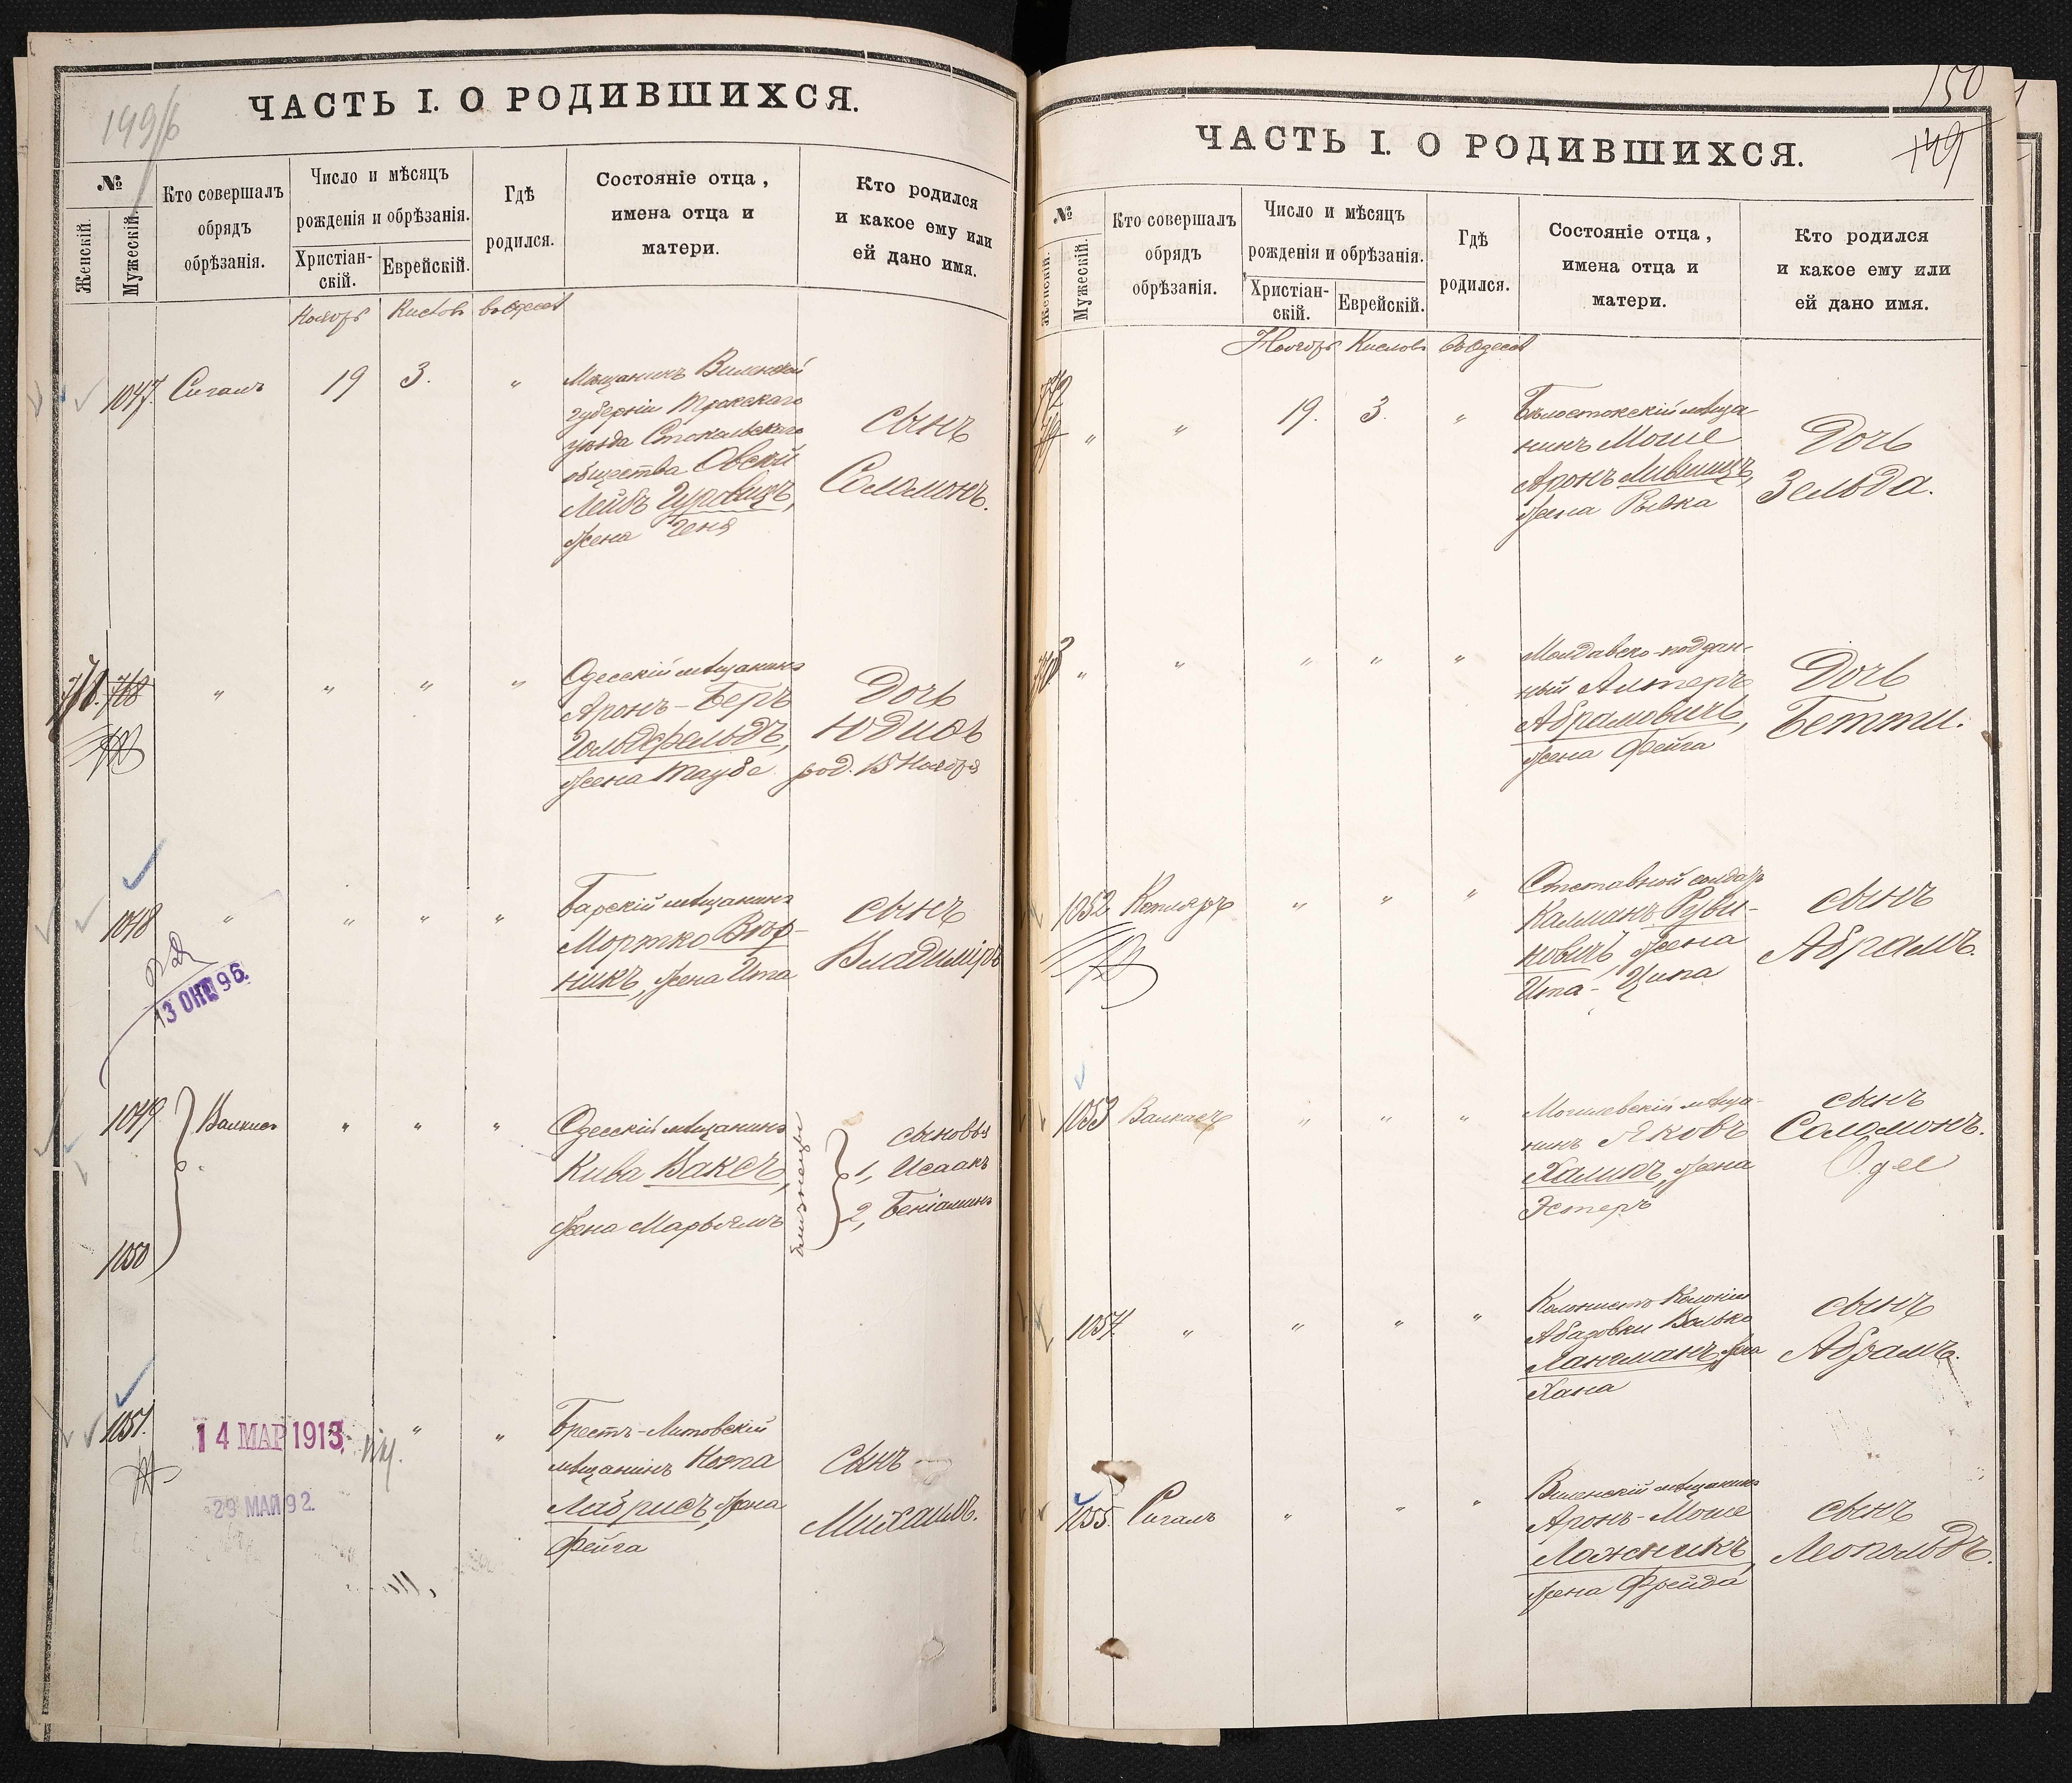 149/б
ЧАСТЬ I. О РОДИВШИХСЯ.
№
Женскій.
Мужескій.
Кто совершалъ
обрядъ
обрѣзанія.
Число и мѣсяцъ
рожденія и обрѣзанія.
Христіан-
скій.
Еврейскій.
Гдѣ
родился.
Состояніе отца,
имена отца и
матери.
Кто родился
и какое ему или
ей дано имя.
Ноябрь Кислов въ Одессѣ
1047. Сигалъ 19 3. "
Мѣщанинъ Виленской
губерніи Трокскаго
уѣзда
общества Овсей
Лейбъ Гуровицъ,
жена Геня
сынъ
Соломонъ.
768. 768 " " " "
Одесскій мѣщанинъ
Аронъ-Беръ
Гольдфельдъ,
жена Таубе
Дочь
Юдиѳь
род. 15 Ноября
1048 " " " "
Барскій мѣщанинъ
Мортко Втор-
никъ, жена Ита
сынъ
Владиміръ
13 ОКТ 96.
1049
1050
Валкис " " "
Одесскій мѣщанинъ
Кива Ваксъ,
жена Марьямъ
близнецы
сыновья
1, Исаакъ
2, Беніаминъ
1051.
14 МАР 1913
29 МАЙ 92.
" "
Брестъ-Литовскій
мѣщанинъ Нота
Лабрисъ, жена
Фейга
Сынъ
Михаилъ.
150
149
ЧАСТЬ I. О РОДИВШИХСЯ.
№
Женскій.
Мужескій.
Кто совершалъ
обрядъ
обрѣзанія.
Число и мѣсяцъ
рожденія и обрѣзанія.
Христіан-
скій.
Еврейскій.
Гдѣ
родился.
Состояніе отца,
имена отца и
матери.
Кто родился
и какое ему или
ей дано имя.
Ноябрь Кислов въ Одессѣ
" " 19. 3. "
Бѣлостокскій мѣща-
нинъ Моше
Аронъ Лившицъ,
жена Рывка
Дочь
Зельда.
" " " " "
Молдавско-поддан-
ный Алтеръ
Абрамовичъ,
жена Фейга
Дочь
Бетти.
1052 Котляръ " " "
Отставной солдатъ
Калманъ Руви-
новичъ, жена
Ита-Ципа
сынъ
Абрамъ.
1053 Валкисъ " " "
Могилевскій мѣща-
нинъ Яковъ
Халикъ, жена
Эстеръ
сынъ
Соломонъ.
1054. " " " "
Колонистъ Колоніи
Абазовки Волько
Лангманъ, жена
Хана
сынъ
Абрамъ.
1055. Сигалъ " " "
Виленскій мѣщанинъ
Аронъ-Моше
Ложникъ,
жена Фрейда
сынъ
Леопольдъ.